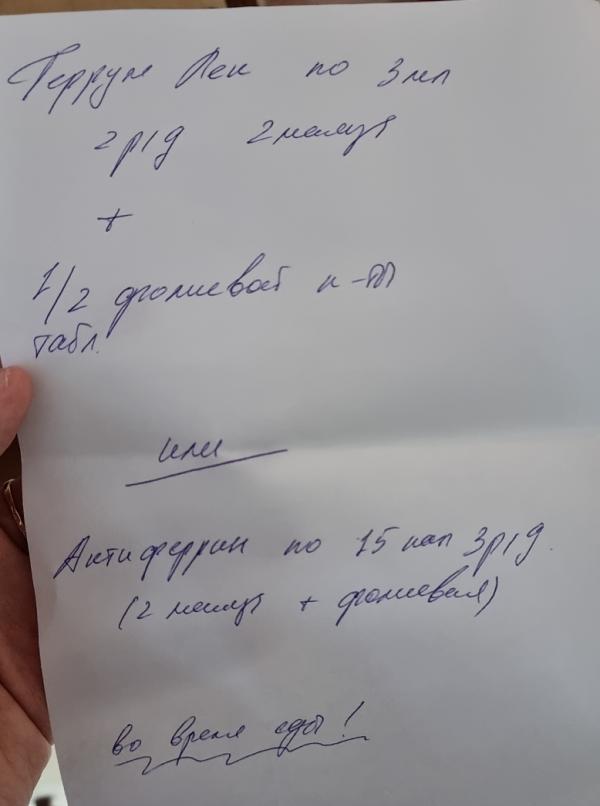 Феррум Лек по 3 мл
2 р/д 2 месяца
+
1/2 фолиевой к-ты
табл.
или
Актиферрин по 15 кап 3 р/д.
(2 месяца + фолиевая)
во время еды!